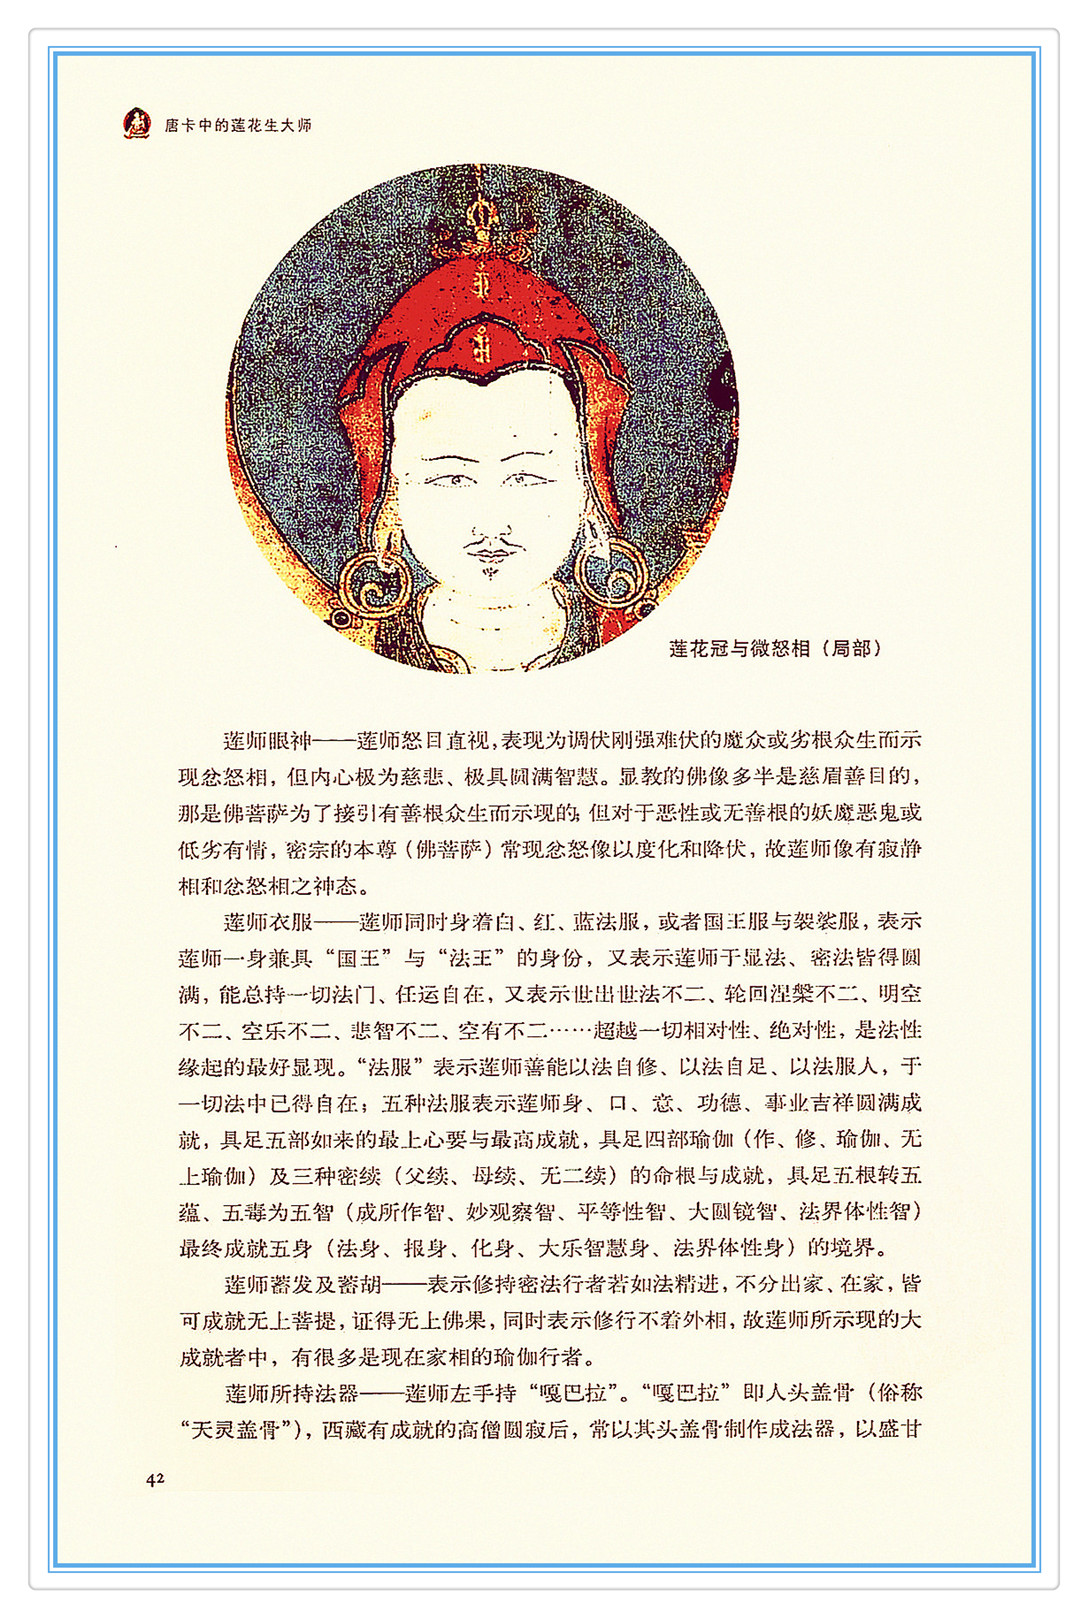 唐卡中的莲花生大师
莲花冠与微怒相（局部）
莲师眼神——莲师怒目直视，表现为调伏刚强难伏的魔众或劣根众生而示
现忿怒相，但内心极为慈悲、极具圆满智慧。显教的佛像多半是慈眉善目的，
那是佛菩萨为了接引有善根众生而示现的；但对于恶性或无善根的妖魔恶鬼或
低劣有情，密宗的本尊（佛菩萨）常现忿怒像以度化和降伏，故莲师像有寂静
相和忿怒相之神态。
莲师衣服——莲师同时身着白、红、蓝法服，或者国王服与袈裟服，表示
莲师一身兼具“国王”与“法王”的身份，又表示莲师于显法、密法皆得圆
满，能总持一切法门、任运自在，又表示世出世法不二、轮回涅槃不二、明空
不二、空乐不二、悲智不二、空有不二……超越一切相对性、绝对性，是法性
缘起的最好显现。“法服”表示莲师善能以法自修、以法自足、以法服人，于
一切法中已得自在；五种法服表示莲师身、口、意、功德、事业吉祥圆满成
就，具足五部如来的最上心要与最高成就，具足四部瑜伽（作、修、瑜伽、无
上瑜伽）及三种密续（父续、母续、无二续）的命根与成就，具足五根转五
蕴、五毒为五智（成所作智、妙观察智、平等性智、大圆镜智、法界体性智）
最终成就五身（法身、报身、化身、大乐智慧身、法界体性身）的境界。
莲师蓄发及蓄胡——表示修持密法行者若如法精进，不分出家、在家，皆
可成就无上菩提，证得无上佛果，同时表示修行不着外相，故莲师所示现的大
成就者中，有很多是现在家相的瑜伽行者。
莲师所持法器——莲师左手持“嘎巴拉”。“嘎巴拉”即人头盖骨（俗称
“天灵盖骨”），西藏有成就的高僧圆寂后，常以其头盖骨制作成法器，以盛甘
42